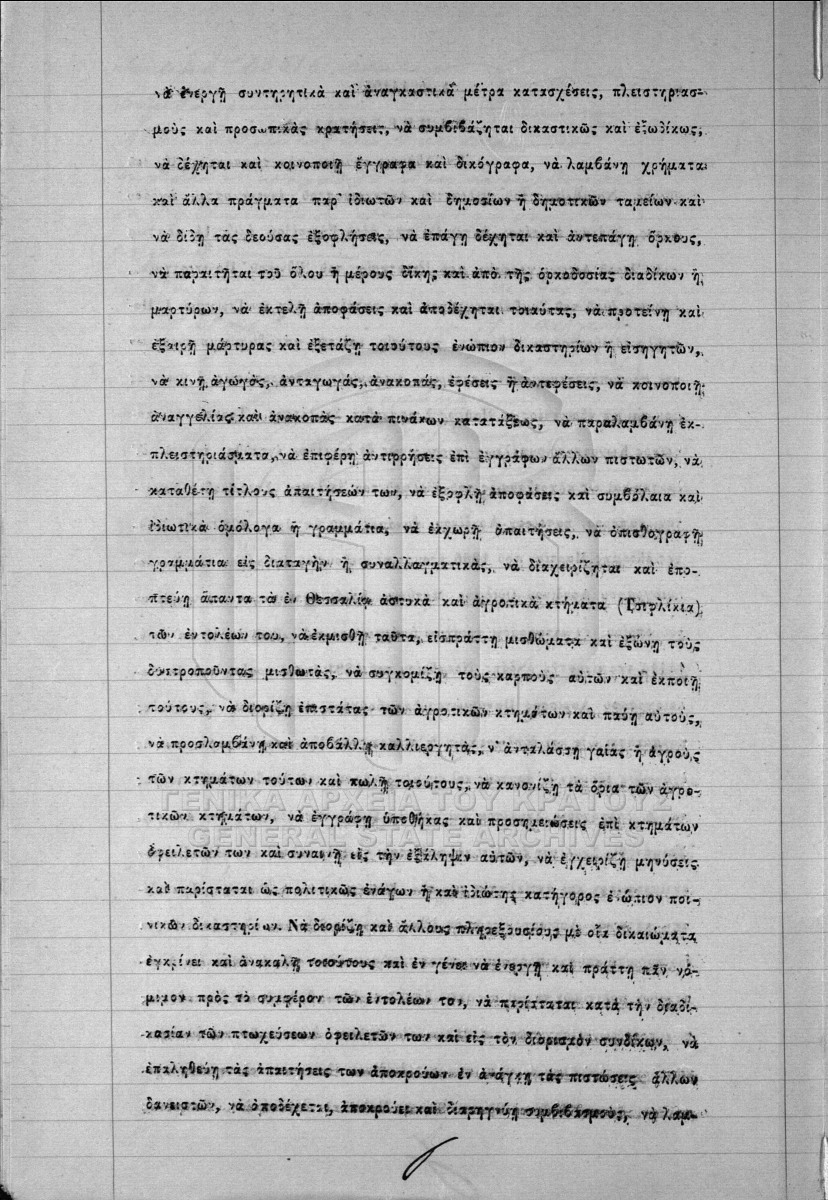 νὰ ἐνεργῇ συντηρητικὰ καὶ ἀναγκαστικὰ μέτρα κατασχέσεις, πλειστηριασ-
μοὺς καὶ προσωπικὰς κρατήσεις, νὰ συμβιβάζηται δικαστικῶς καὶ ἐξωδίκως,
νὰ δέχηται καὶ κοινοποιῇ ἔγγραφα καὶ δικόγραφα, νὰ λαμβάνῃ χρήματα
καὶ ἄλλα πράγματα παρ' ἰδιωτῶν καὶ δημοσίων ἢ δημοτικῶν ταμείων καὶ
νὰ δίδῃ τὰς δεούσας ἐξοφλήσεις, νὰ ἐπάγῃ δέχηται καὶ ἀντεπάγῃ ὅρκους,
νὰ παραιτῆται τοῦ ὅλου ἢ μέρους δίκης καὶ ἀπὸ τῆς ὁρκοδοσίας διαδίκων ἢ
μαρτύρων, νὰ ἐκτελῇ ἀποφάσεις καὶ ἀποδέχηται τοιαύτας, νὰ προτείνῃ καὶ
ἐξαιρῇ μάρτυρας καὶ ἐξετάζῃ τοιούτους ἐνώπιον δικαστηρίων ἢ εἰσηγητῶν,
νὰ κινῇ ἀγωγάς, ἀνταγωγάς, ἀνακοπάς, ἐφέσεις ἢ ἀντεφέσεις, νὰ κοινοποιῇ
ἀναγγελίας καὶ ἀνακοπὰς κατὰ πινάκων κατατάξεως, νὰ παραλαμβάνῃ ἐκ-
πλειστηριάσματα, νὰ ἐπιφέρῃ ἀντιρρήσεις ἐπὶ ἐγγράφων ἄλλων πιστωτῶν, νὰ
καταθέτῃ τίτλους ἀπαιτήσεών των, νὰ ἐξοφλῇ ἀποφάσεις καὶ συμβόλαια καὶ
ἰδιωτικὰ ὁμόλογα ἢ γραμμάτια, νὰ ἐκχωρῇ ἀπαιτήσεις, νὰ ὀπισθογραφῇ
γραμμάτια εἰς διαταγὴν ἢ συναλλαγματικὰς, νὰ διαχειρίζηται καὶ ἐπο-
πτεύῃ ἅπαντα τὰ ἐν Θεσσαλίᾳ ἀστυκὰ καὶ ἀγροτικὰ κτήματα (Τσιφλίκια)
τῶν ἐντολέων του, νὰ ἐκμισθῇ ταῦτα, εἰσπράττῃ μισθώματα καὶ ἐξώνῃ τοὺς
δυστροποῦντας μισθωτὰς, νὰ συγκομίζῃ τοὺς καρποὺς αὐτῶν καὶ ἐκποιῇ
τούτους, νὰ διορίζῃ ἐπιστάτας τῶν ἀγροτικῶν κτημάτων καὶ παύῃ αὐτούς,
νὰ προσλαμβάνῃ καὶ ἀποβάλλῃ καλλιεργητὰς, ν' ἀνταλάσσῃ γαίας ἢ ἀγροὺς
τῶν κτημάτων τούτων καὶ πωλῇ τοιούτους, νὰ κανονίζῃ τὰ ὅρια τῶν ἀγρο-
τικῶν κτημάτων, νὰ ἐγγράφῃ ὑποθήκας καὶ προσημειώσεις ἐπὶ κτημάτων
ὀφειλετῶν των καὶ συναινῇ εἰς τὴν ἐξάληψιν αὐτῶν, νὰ ἐγχειρίζῃ μηνύσεις
καὶ παρίσταται ὡς πολιτικῶς ἐνάγων ἢ καὶ ἰδιώτης κατήγορος ἐνώπιον ποι-
νικῶν δικαστηρίων. Νὰ διορίζῃ καὶ ἄλλους πληρεξουσίους μὲ οἷα δικαιώματα
ἐγκρίνει καὶ ἀνακαλῇ τοιούτους καὶ ἐν γένει νὰ ἐνεργῇ καὶ πράττῃ πᾶν νό-
μιμον πρὸς τὸ συμφέρον τῶν ἐντολέων του, νὰ παρίσταται κατὰ τὴν διαδι-
κασίαν τῶν πτωχεύσεων ὀφειλετῶν των καὶ εἰς τὸν διορισμὸν συνδίκων, νὰ
ἐπαληθεύῃ τὰς ἀπαιτήσεις των ἀποκρούων ἐν ἀνάγκῃ τὰς πιστώσεις ἄλλων
δανειστῶν, νὰ ἀποδέχεται, ἀποκρούει καὶ διαρηγνύῃ συμβιβασμοὺς, νὰ λαμ-
ΓΕΝΙΚΑ ΑΡΧΕΙΑ ΤΟΥ ΚΡΑΤΟΥΣ
GENERAL STATE ARCHIVES